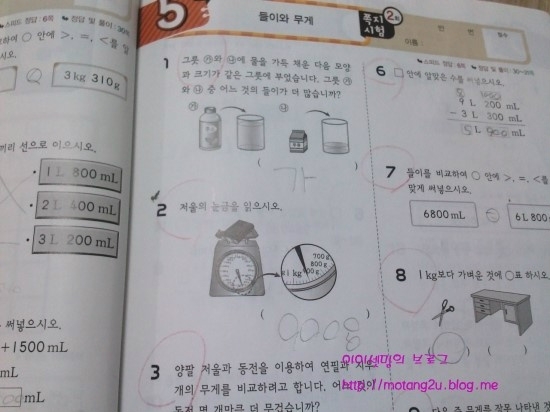 스피드 정답 : 6쪽 정답 및 풀이 : 30쪽
○ 안에 >, =, <를 알
3 kg 310 g
끼리 선으로 이으시오.
1 L 800 mL
2 L 400 mL
3 L 200 mL
써넣으시오.
+1500 mL
mL
mL
5
들이와 무게
쪽지시험 2회
반 번
이름 :
점수
1 그릇 ㉮와 ㉯에 물을 가득 채운 다음 모양
과 크기가 같은 그릇에 부었습니다. 그릇 ㉮
와 ㉯ 중 어느 것의 들이가 더 많습니까?
㉮ ㉯
( )
가
2 저울의 눈금을 읽으시오.
700 g
800 g
900 g
1 kg
( )
3 양팔 저울과 동전을 이용하여 연필과 지우
개의 무게를 비교하려고 합니다.
동전 몇 개만큼 더 무겁습니까?
6 □ 안에 알맞은 수를 써넣으시오.
9 L 200 mL
− 3 L 300 mL
5 L 900 mL
7 들이를 비교하여 ○ 안에 >, =, <를
맞게 써넣으시오.
6800 mL = 6 L 800
8 1 kg보다 가벼운 것에 ○표 하시오.
( ) ( )
http://motang2u.blog.me